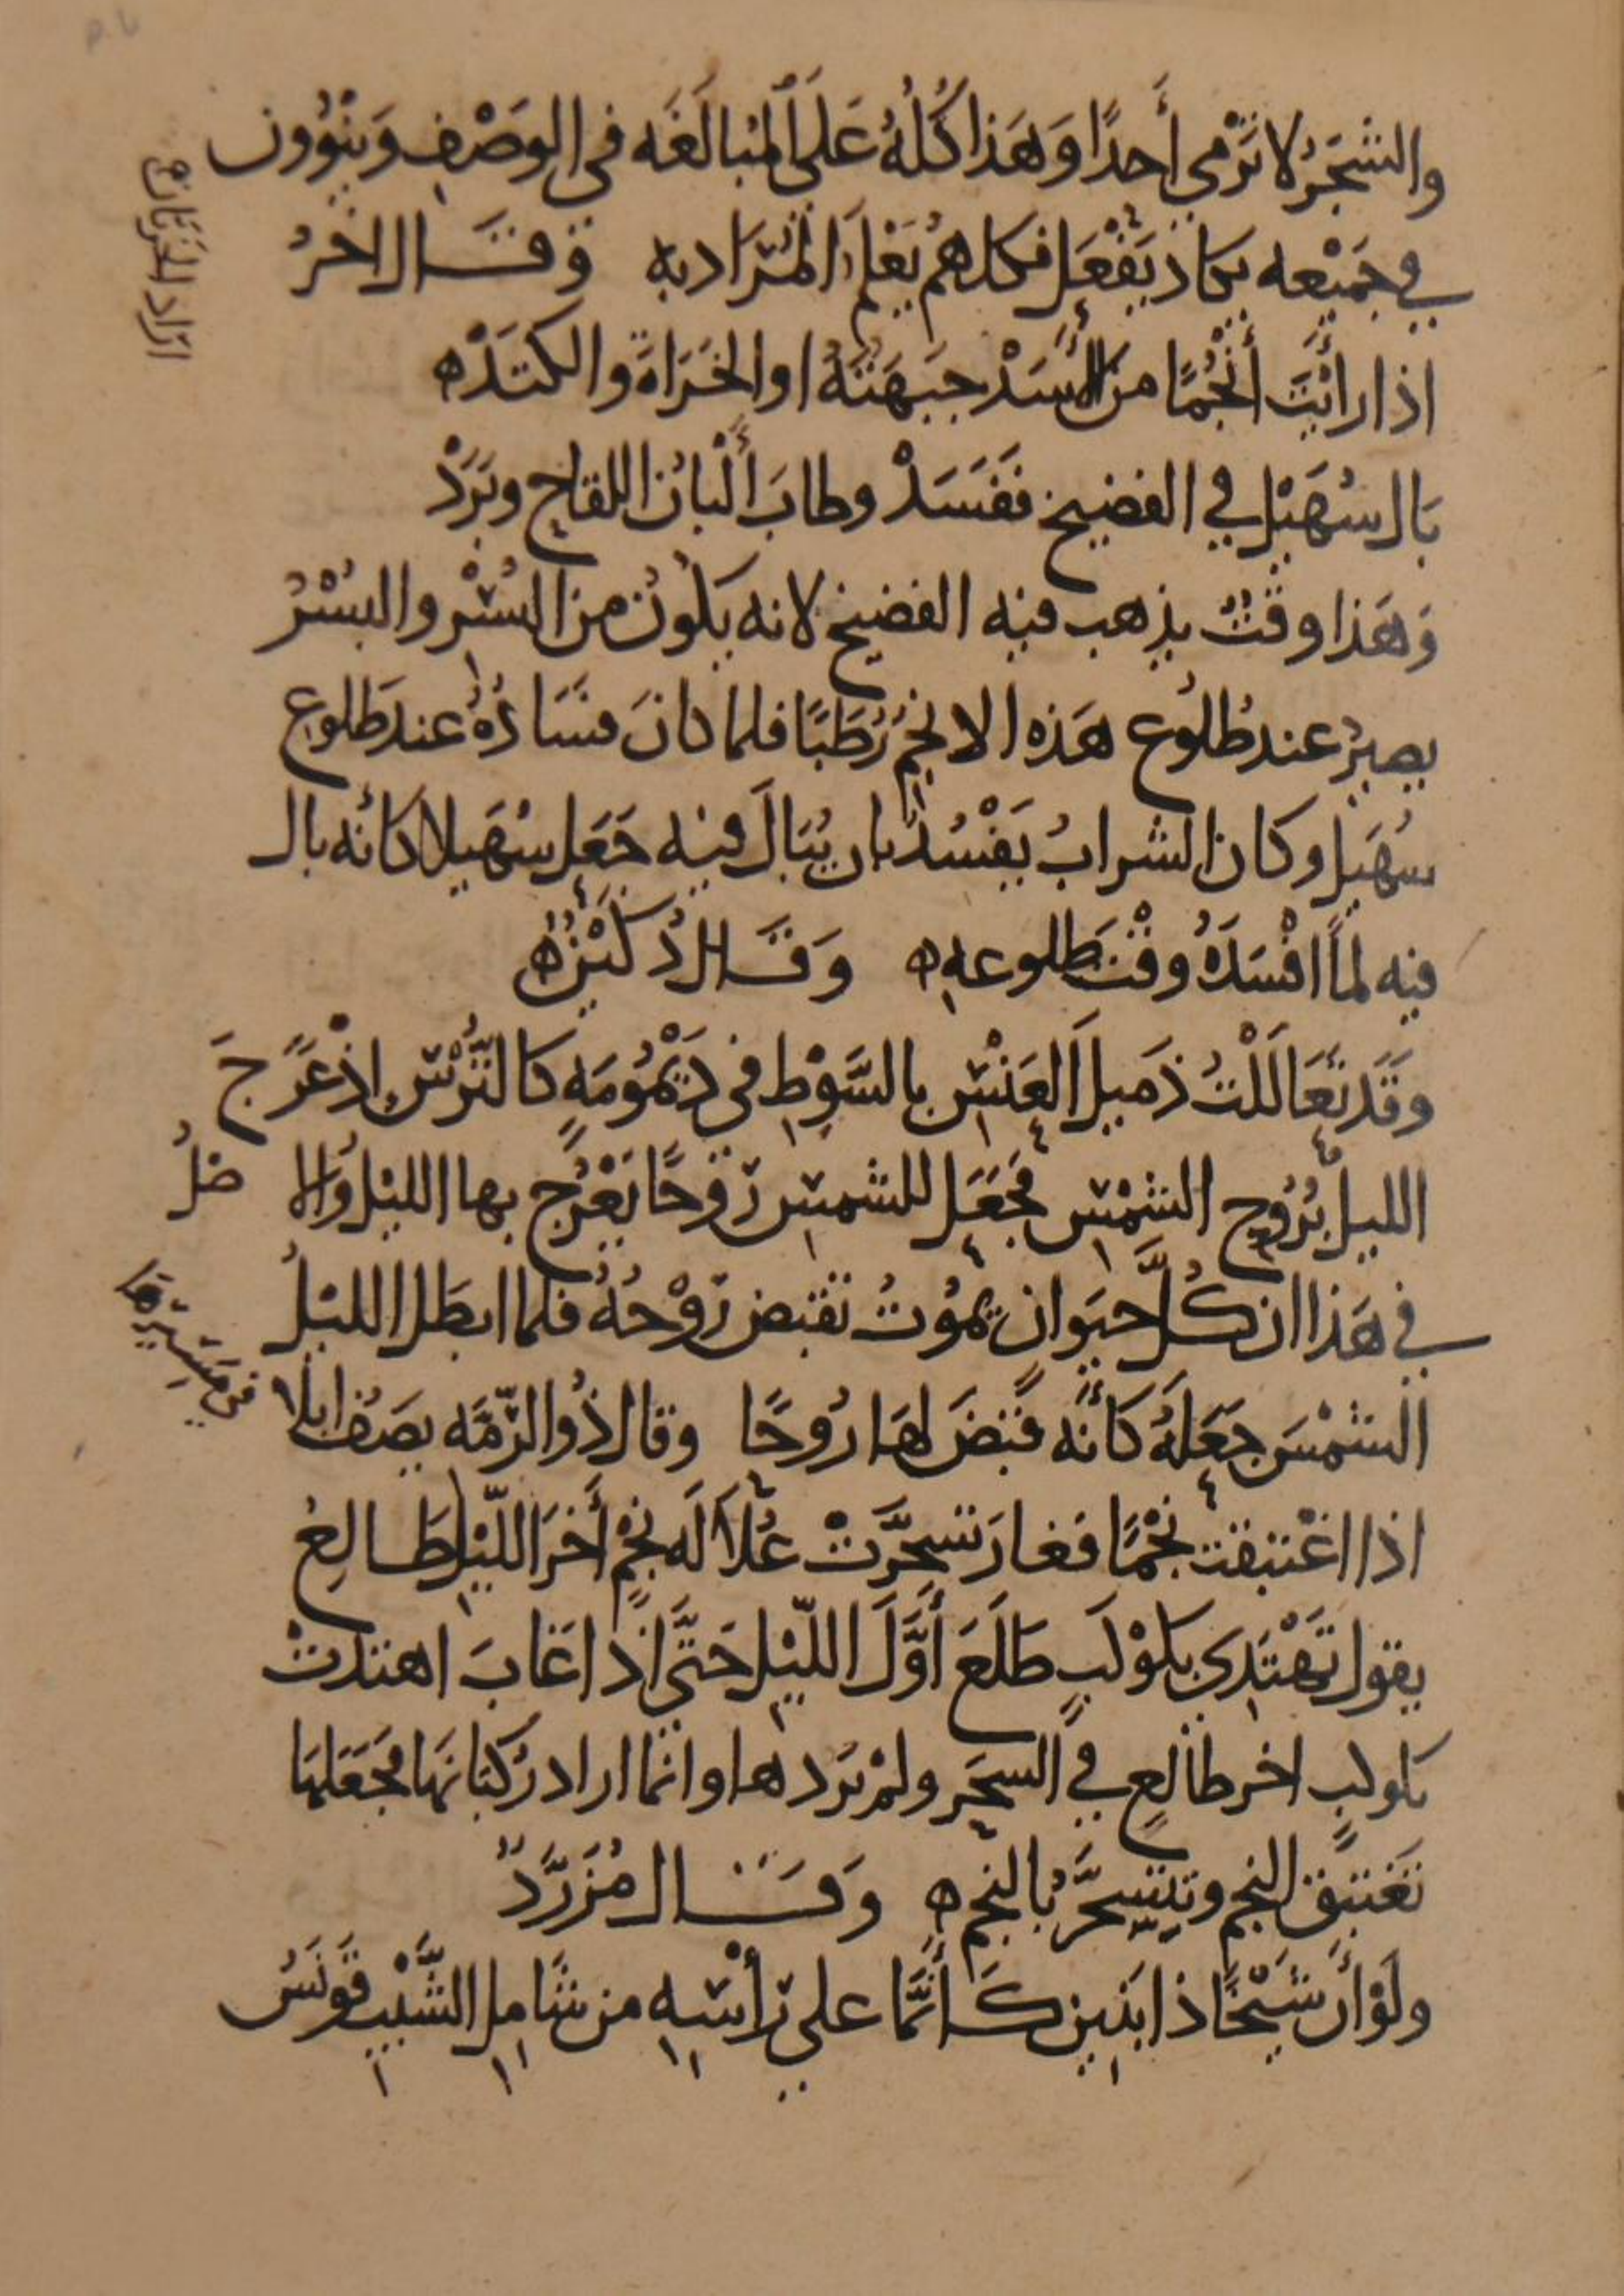 والشَّجَرُ لا تَرْمي أَحدًا وَهَذا كُلُّهُ عَلَى المُبالَغَه في الوَصْفِ وَيَنْوُون
في جَمِيْعه يكاد يَفْعَل فكلهم يَعْلَم المُرَاد به وَقَال اخَرُ
اذا رأَيْتَ أَنْجُمًا من الأَسَدْ جَبهَتَهُ او الخَرَاةَ والكَتَدْ
بَال سُهَيْل في الفضيخ فَفَسَدْ وطابَ أَلْبانُ اللقاح وبَرَدْ
وَهَذا وقْتٌ يذهب فيه الفضيخ لانه يكُونُ من البُسْرِ والبُسْرُ
يصيرُ عند طُلُوع هَذه الانجُمِ رُطَبًا فلما كانَ فسَادُهُ عند طلوع
سُهَيل وكان الشرابُ يَفْسُدُ بان يُبَالَ فيه جَعَل سُهَيلا كأنه بال
فيه لمَّا افْسَدَهُ وقْتَ طلوعهِ وَقَال دُكَيْنٌ
وَقَد تَعَالَلْتُ ذَميلَ العَنْسِ بالسَّوْطِ في دَيْمُومَةٍ كالتُّرْسِ اذْ عَرَّجَ
الليلُ بُرُوحِ الشَّمْسِ فجَعَل للشمس رُوحًا يَعْرُج بها الليل والا صْلُ
في هَذا ان كُلَّ حيَوانٍ يموُتُ تقبض رُوْحُهُ فلما ابطَل الليْلُ
الشمْسَ جَعَلَهُ كأنَّه قَبَضَ لهَا رُوحًا وقال ذُو الرّمَّه يصَفُ ابلًا
اذا اغْتبقت نَجْمًا فغارَ تسَحَّرَتْ عُلَالَه نجْمٍ أَخَرَ اللّيْلِ طَالِعُ
يقول تَهْتَدِي بكوْكَبٍ طَلَعَ أَوَّلَ اللّيْلِ حَتَّى اذا غَابَ اهتدتْ
بكوكبٍ اخر طالعٍ في السحَر ولمْ يُرِدها وانما اراد رُكبَانَها فجَعَلهَا
تَغْتَبِقُ النجم وتتسَحَّرُ بالنجم وَقَال مُزَرِّدٌ
ولَوْ أَنَّ شَيْخًا ذا بَنِين كَأنَّما على رَأْسِهِ من شَامِل الشَّيْبِ قَوْنَسُ
في مَسِيْرِهَا